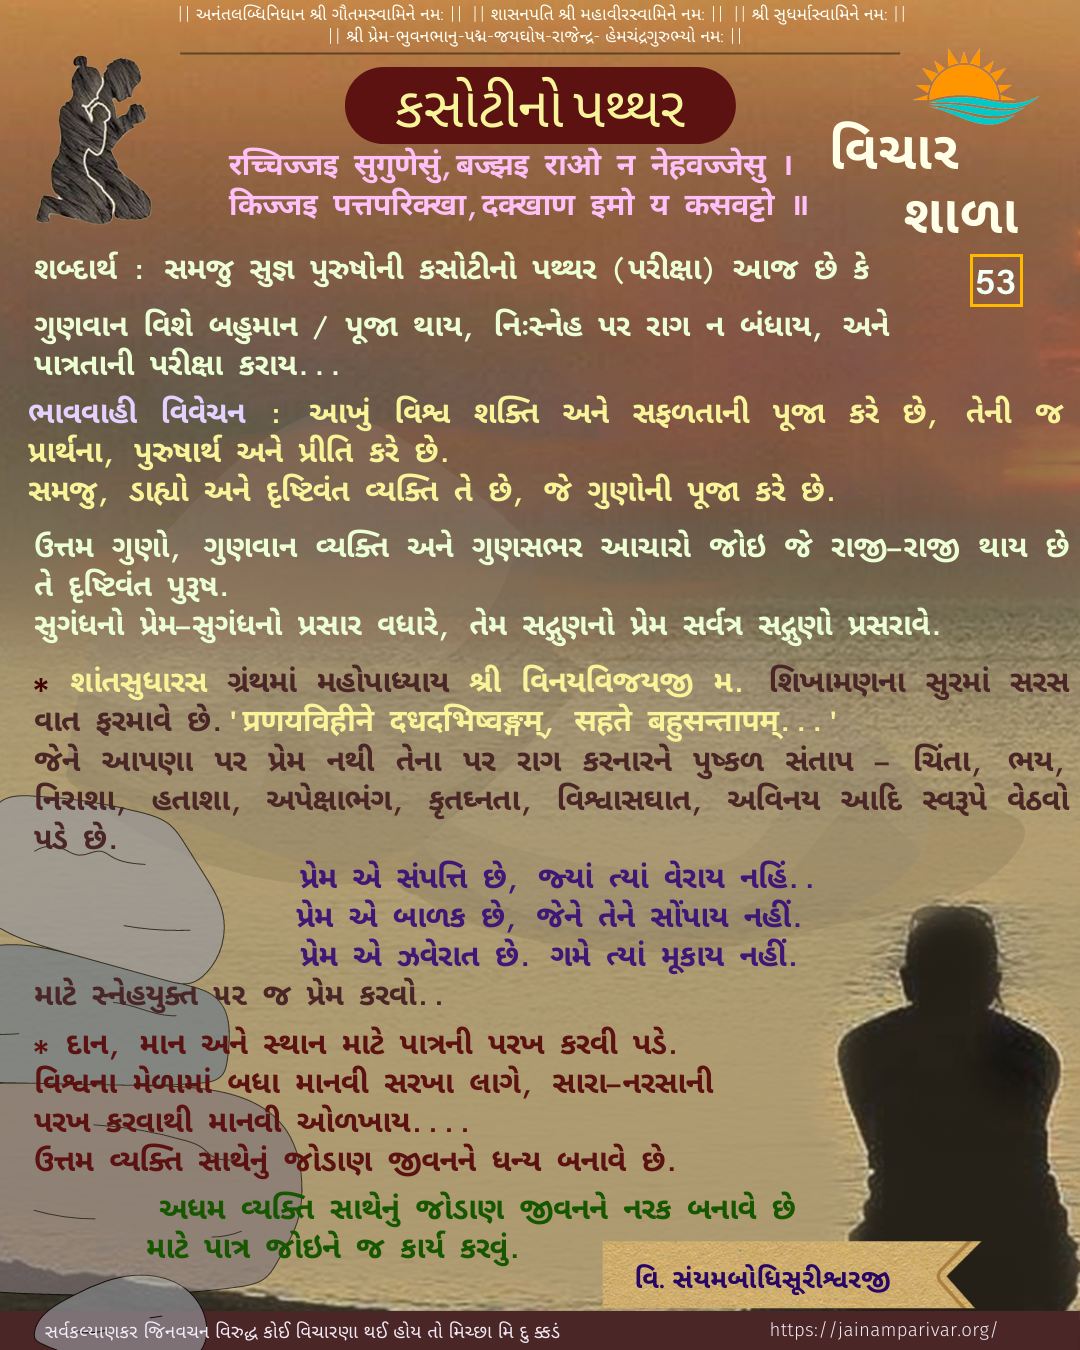 || અનંતલબ્ધિનિધાન શ્રી ગૌતમસ્વામિને નમ: || || શાસનપતિ શ્રી મહાવીરસ્વામિને નમ: || || શ્રી સુધર્માસ્વામિને નમ: ||
|| શ્રી પ્રેમ-ભુવનભાનુ-પદ્મ-જયઘોષ-રાજેન્દ્ર- હેમચંદ્રગુરુભ્યો નમ: ||
કસોટીનો પથ્થર
વિચાર
શાળા
53
रच्चिज्जइ सुगुणेसुं,बज्झइ राओ न नेहवज्जेसु ।
किज्जइ पत्तपरिक्खा,दक्खाण इमो य कसवट्टो ॥
શબ્દાર્થ : સમજુ સુજ્ઞ પુરુષોની કસોટીનો પથ્થર (પરીક્ષા) આજ છે કે
ગુણવાન વિશે બહુમાન / પૂજા થાય, નિ:સ્નેહ પર રાગ ન બંધાય, અને
પાત્રતાની પરીક્ષા કરાય...
ભાવવાહી વિવેચન : આખું વિશ્વ શક્તિ અને સફળતાની પૂજા કરે છે, તેની જ
પ્રાર્થના, પુરુષાર્થ અને પ્રીતિ કરે છે.
સમજુ, ડાહ્યો અને દૃષ્ટિવંત વ્યક્તિ તે છે, જે ગુણોની પૂજા કરે છે.
ઉત્તમ ગુણો, ગુણવાન વ્યક્તિ અને ગુણસભર આચારો જોઇ જે રાજી–રાજી થાય છે
તે દૃષ્ટિવંત પુરૂષ.
સુગંધનો પ્રેમ–સુગંધનો પ્રસાર વધારે, તેમ સદ્ગુણનો પ્રેમ સર્વત્ર સદ્ગુણો પ્રસરાવે.
* શાંતસુધારસ ગ્રંથમાં મહોપાધ્યાય શ્રી વિનયવિજયજી મ. શિખામણના સુરમાં સરસ
વાત ફરમાવે છે.'प्रणयविहीने दधदभिष्वङ्गम्, सहते बहुसन्तापम्...'
જેને આપણા પર પ્રેમ નથી તેના પર રાગ કરનારને પુષ્કળ સંતાપ – ચિંતા, ભય,
નિરાશા, હતાશા, અપેક્ષાભંગ, કૃતઘ્નતા, વિશ્વાસઘાત, અવિનય આદિ સ્વરૂપે વેઠવો
પડે છે.
પ્રેમ એ સંપત્તિ છે, જ્યાં ત્યાં વેરાય નહિં..
પ્રેમ એ બાળક છે, જેને તેને સોંપાય નહીં.
પ્રેમ એ ઝવેરાત છે. ગમે ત્યાં મૂકાય નહીં.
માટે સ્નેહયુક્ત પર જ પ્રેમ કરવો..
* દાન, માન અને સ્થાન માટે પાત્રની પરખ કરવી પડે.
વિશ્વના મેળામાં બધા માનવી સરખા લાગે, સારા–નરસાની
પરખ કરવાથી માનવી ઓળખાય....
ઉત્તમ વ્યક્તિ સાથેનું જોડાણ જીવનને ધન્ય બનાવે છે.
અધમ વ્યક્તિ સાથેનું જોડાણ જીવનને નરક બનાવે છે
માટે પાત્ર જોઇને જ કાર્ય કરવું.
વિ. સંયમબોધિસૂરીશ્વરજી
સર્વકલ્યાણકર જિનવચન વિરુદ્ધ કોઈ વિચારણા થઈ હોય તો મિચ્છા મિ દુ ક્કડં
https://jainamparivar.org/